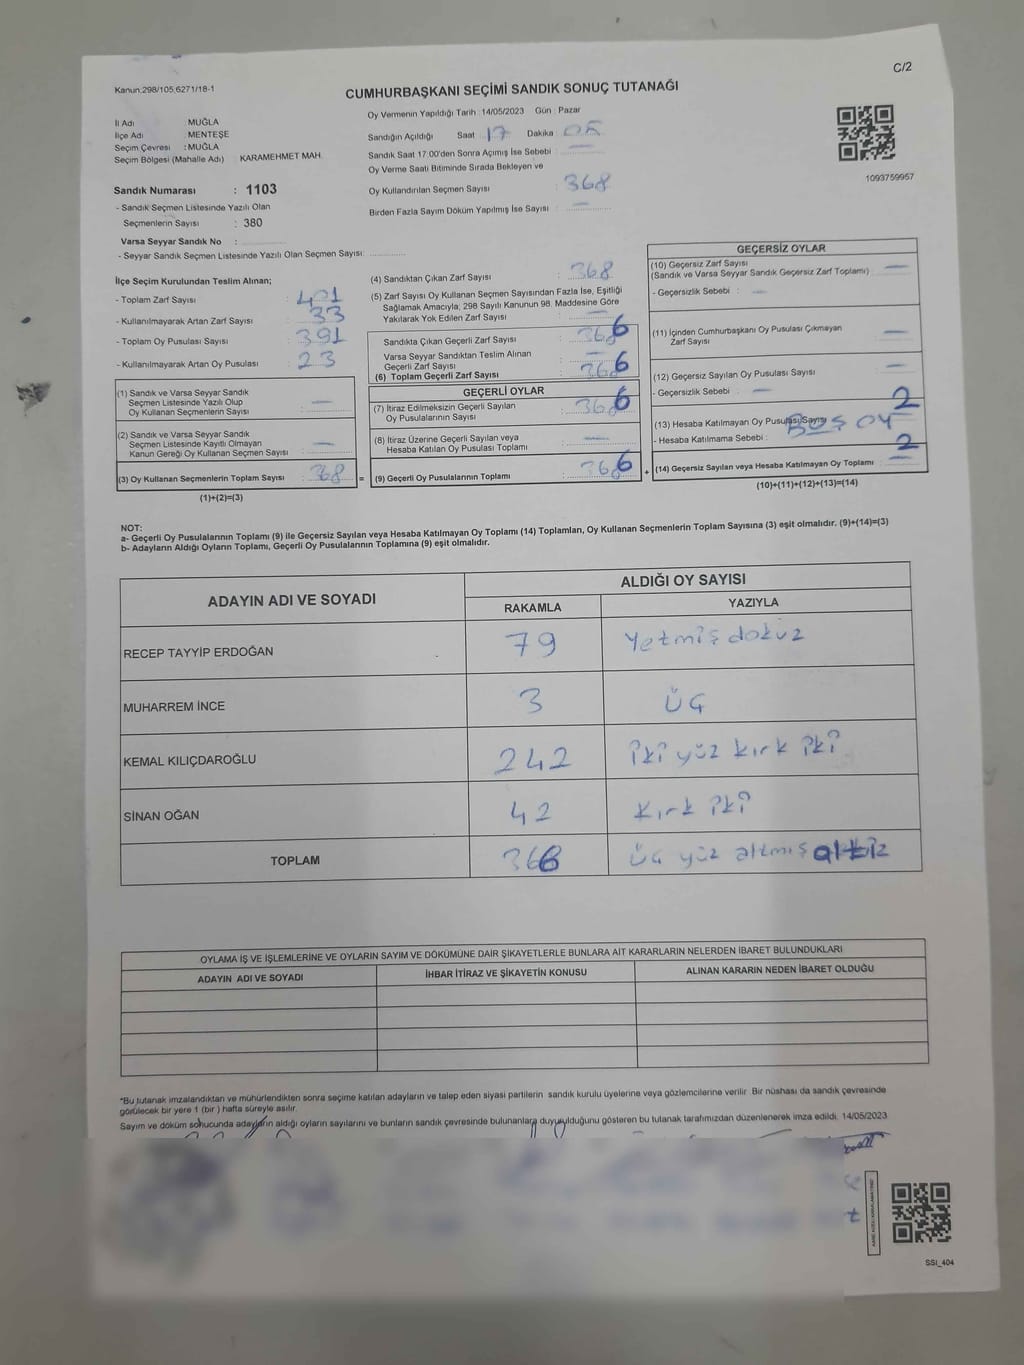 C/2
Kanun:298/105,6271/18-1
CUMHURBAŞKANI SEÇİMİ SANDIK SONUÇ TUTANAĞI
Oy Vermenin Yapıldığı Tarih : 14/05/2023 Gün : Pazar
İl Adı : MUĞLA
İlçe Adı : MENTEŞE
Seçim Çevresi : MUĞLA
Seçim Bölgesi (Mahalle Adı) KARAMEHMET MAH.
Sandığın Açıldığı Saat : 17 Dakika : 05
Sandık Saat 17:00'den Sonra Açılmış İse Sebebi : —
Oy Verme Saati Bitiminde Sırada Bekleyen ve
Oy Kullandırılan Seçmen Sayısı : 368
Birden Fazla Sayım Döküm Yapılmış İse Sayısı : —
1093759957
Sandık Numarası : 1103
- Sandık Seçmen Listesinde Yazılı Olan
Seçmenlerin Sayısı : 380
Varsa Seyyar Sandık No :
- Seyyar Sandık Seçmen Listesinde Yazılı Olan Seçmen Sayısı:
İlçe Seçim Kurulundan Teslim Alınan;
- Toplam Zarf Sayısı : 401
- Kullanılmayarak Artan Zarf Sayısı : 33
- Toplam Oy Pusulası Sayısı : 391
- Kullanılmayarak Artan Oy Pusulası : 23
(1) Sandık ve Varsa Seyyar Sandık
Seçmen Listesinde Yazılı Olup
Oy Kullanan Seçmenlerin Sayısı —
(2) Sandık ve Varsa Seyyar Sandık
Seçmen Listesinde Kayıtlı Olmayan
Kanun Gereği Oy Kullanan Seçmen Sayısı —
(3) Oy Kullanan Seçmenlerin Toplam Sayısı 368 =
(1)+(2)=(3)
(4) Sandıktan Çıkan Zarf Sayısı : 368
(5) Zarf Sayısı Oy Kullanan Seçmen Sayısından Fazla İse, Eşitliği
Sağlamak Amacıyla; 298 Sayılı Kanunun 98. Maddesine Göre
Yakılarak Yok Edilen Zarf Sayısı : —
Sandıkta Çıkan Geçerli Zarf Sayısı : 366
Varsa Seyyar Sandıktan Teslim Alınan
Geçerli Zarf Sayısı : —
(6) Toplam Geçerli Zarf Sayısı : 366
GEÇERLİ OYLAR
(7) İtiraz Edilmeksizin Geçerli Sayılan
Oy Pusulalarının Sayısı : 366
(8) İtiraz Üzerine Geçerli Sayılan veya
Hesaba Katılan Oy Pusulası Toplamı : —
(9) Geçerli Oy Pusulalarının Toplamı : 366 +
GEÇERSİZ OYLAR
(10) Geçersiz Zarf Sayısı
(Sandık ve Varsa Seyyar Sandık Geçersiz Zarf Toplamı) —
- Geçersizlik Sebebi : —
(11) İçinden Cumhurbaşkanı Oy Pusulası Çıkmayan
Zarf Sayısı —
(12) Geçersiz Sayılan Oy Pusulası Sayısı —
- Geçersizlik Sebebi : —
(13) Hesaba Katılmayan Oy Pusulası Sayısı 2
- Hesaba Katılmama Sebebi : BOŞ OY
(14) Geçersiz Sayılan veya Hesaba Katılmayan Oy Toplamı 2
(10)+(11)+(12)+(13)=(14)
NOT:
a- Geçerli Oy Pusulalarının Toplamı (9) ile Geçersiz Sayılan veya Hesaba Katılmayan Oy Toplamı (14) Toplamları, Oy Kullanan Seçmenlerin Toplam Sayısına (3) eşit olmalıdır. (9)+(14)=(3)
b- Adayların Aldığı Oyların Toplamı, Geçerli Oy Pusulalarının Toplamına (9) eşit olmalıdır.
ADAYIN ADI VE SOYADI ALDIĞI OY SAYISI
RAKAMLA YAZIYLA
RECEP TAYYİP ERDOĞAN 79 Yetmiş dokuz
MUHARREM İNCE 3 Üç
KEMAL KILIÇDAROĞLU 242 iki yüz kırk iki
SİNAN OĞAN 42 Kırk iki
TOPLAM 366 Üç yüz altmış altı
OYLAMA İŞ VE İŞLEMLERİNE VE OYLARIN SAYIM VE DÖKÜMÜNE DAİR ŞİKAYETLERLE BUNLARA AİT KARARLARIN NELERDEN İBARET BULUNDUKLARI
ADAYIN ADI VE SOYADI İHBAR İTİRAZ VE ŞİKAYETİN KONUSU ALINAN KARARIN NEDEN İBARET OLDUĞU
*Bu tutanak imzalandıktan ve mühürlendikten sonra seçime katılan adayların ve talep eden siyasi partilerin sandık kurulu üyelerine veya gözlemcilerine verilir. Bir nüshası da sandık çevresinde
görülecek bir yere 1 (bir ) hafta süreyle asılır.
Sayım ve döküm sonucunda adayların aldığı oyların sayılarını ve bunların sandık çevresinde bulunanlara duyurulduğunu gösteren bu tutanak tarafımızdan düzenlenerek imza edildi. 14/05/2023
SSI_404